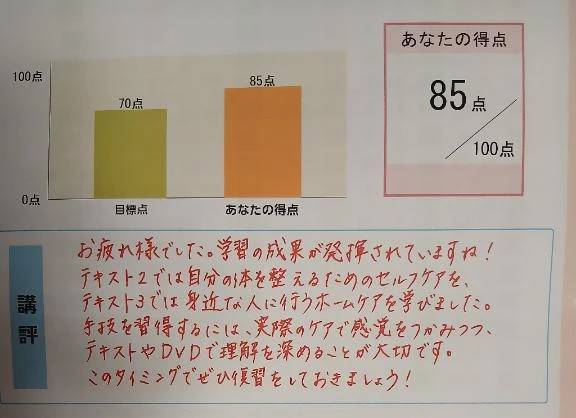 100点
70点
85点
0点
目標点
あなたの得点
あなたの得点
85点
100点
講評
お疲れ様でした。学習の成果が発揮されていますね！
テキスト2では自分の体を整えるためのセルフケアを、
テキスト3では身近な人に行うホームケアを学びました。
手技を習得するには、実際のケアで感覚をつかみつつ、
テキストやDVDで理解を深めることが大切です。
このタイミングでぜひ復習をしておきましょう！